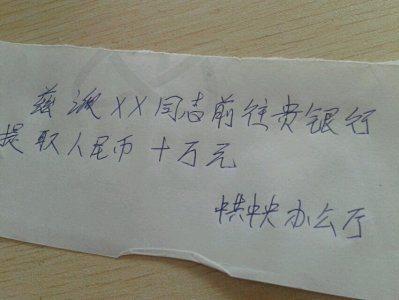 兹派XX同志前往贵银行
提取人民币十万元
中共中央办公厅